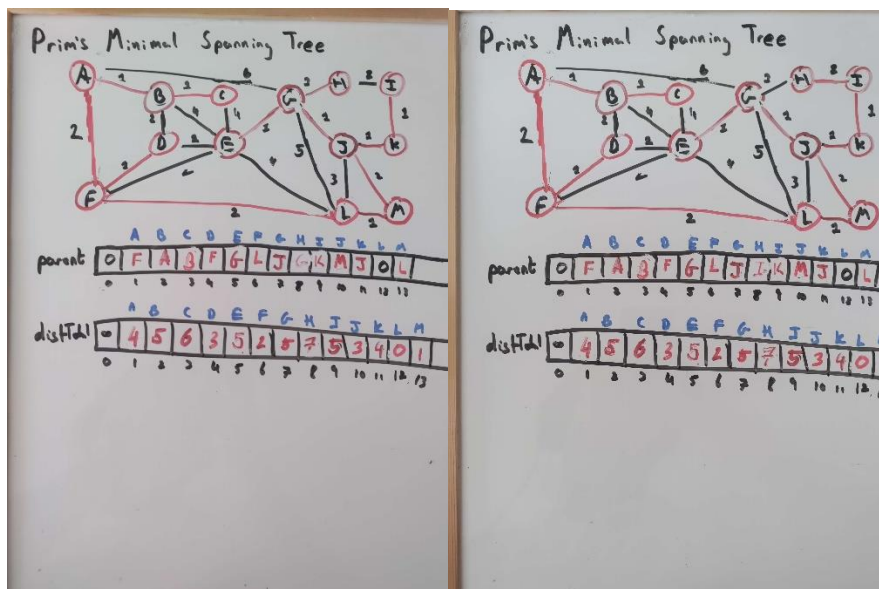 Prim's Minimal Spanning Tree
A 6 H 2 I
1 B 1 C G 3
2 4 4 1 1
2 D 2 E 1 5 J 1 K
1 4 3 2
F 2 L 1 M
A B C D E F G H I J K L M
parent 0 F A B F G L J G K M J 0 L
0 1 2 3 4 5 6 7 8 9 10 11 12 13
A B C D E F G H I J K L M
distTo[] ∞ 4 5 6 3 5 2 5 7 5 3 4 0 1
0 1 2 3 4 5 6 7 8 9 10 11 12 13
Prim's Minimal Spanning Tree
A 6 H 8 I
1 B 1 C G 3
2 4 4 1 1
2 D 2 E 1 5 J 1 K
1 4 3 2
F 2 L 1 M
A B C D E F G H I J K L M
parent 0 F A B F G L J I K M J 0 L
0 1 2 3 4 5 6 7 8 9 10 11 12 13
A B C D E F G H I J K L
distTo[] ∞ 4 5 6 3 5 2 5 7 5 3 4 0
0 1 2 3 4 5 6 7 8 9 10 11 12